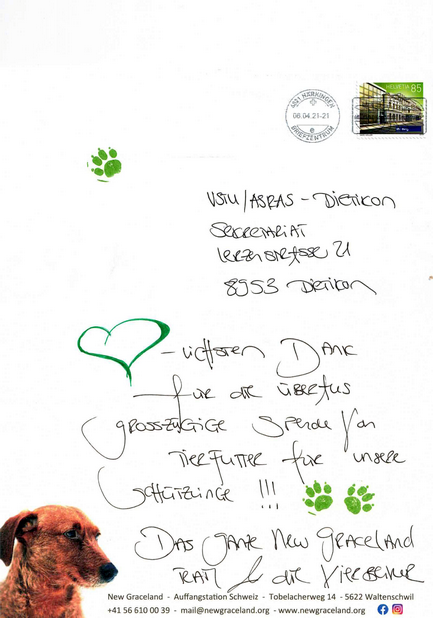 HELVETIA 85
4621 HÄRKINGEN
06.04.21-21
BRIEFZENTRUM
VSTU/ASRAS - Dietikon
Sekretariat
Lerzenstrasse 21
8953 Dietikon
-lichsten Dank
für die überaus
grosszügige Spende von
Tierfutter für unsere
Schützlinge !!!
Das ganze New Graceland
Team & die Vierbeiner
New Graceland - Auffangstation Schweiz - Tobelacherweg 14 - 5622 Waltenschwil
+41 56 610 00 39 - mail@newgraceland.org - www.newgraceland.org